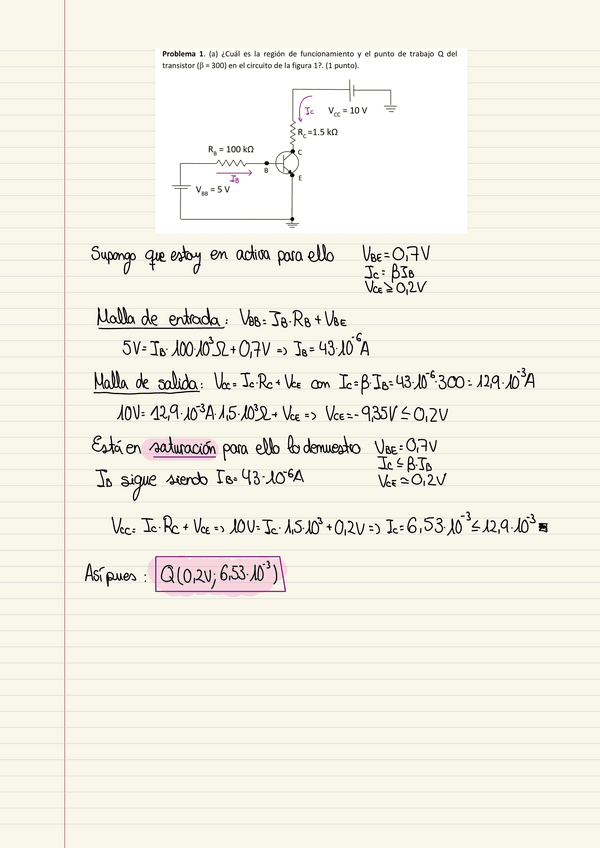 Problema 1. (a) ¿Cuál es la región de funcionamiento y el punto de trabajo Q del
transistor (β = 300) en el circuito de la figura 1?. (1 punto).
Ic
V_CC = 10 V
R_C =1.5 kΩ
R_B = 100 kΩ
C
B
E
I_B
V_BB = 5 V
Supongo que estoy en activa para ello V_BE = 0,7V
I_C = βI_B
V_CE ≥ 0,2V
Malla de entrada: V_BB = I_B·R_B + V_BE
5V = I_B·100·10³Ω + 0,7V => I_B = 43·10⁻⁶A
Malla de salida: Vcc = I_C·R_C + V_CE con I_C = β·I_B = 43·10⁻⁶·300 = 12,9·10⁻³A
10V = 12,9·10⁻³A·1,5·10³Ω + V_CE => V_CE = -9,35V ≤ 0,2V
Está en saturación para ello lo demuestro V_BE = 0,7V
I_C ≤ β·I_B
I_B sigue siendo I_B = 43·10⁻⁶A V_CE ≃ 0,2V
V_CC = I_C·R_C + V_CE => 10V = I_C·1,5·10³ + 0,2V => I_C = 6,53·10⁻³ ≤ 12,9·10⁻³
Así pues: Q(0,2V; 6,53·10⁻³)